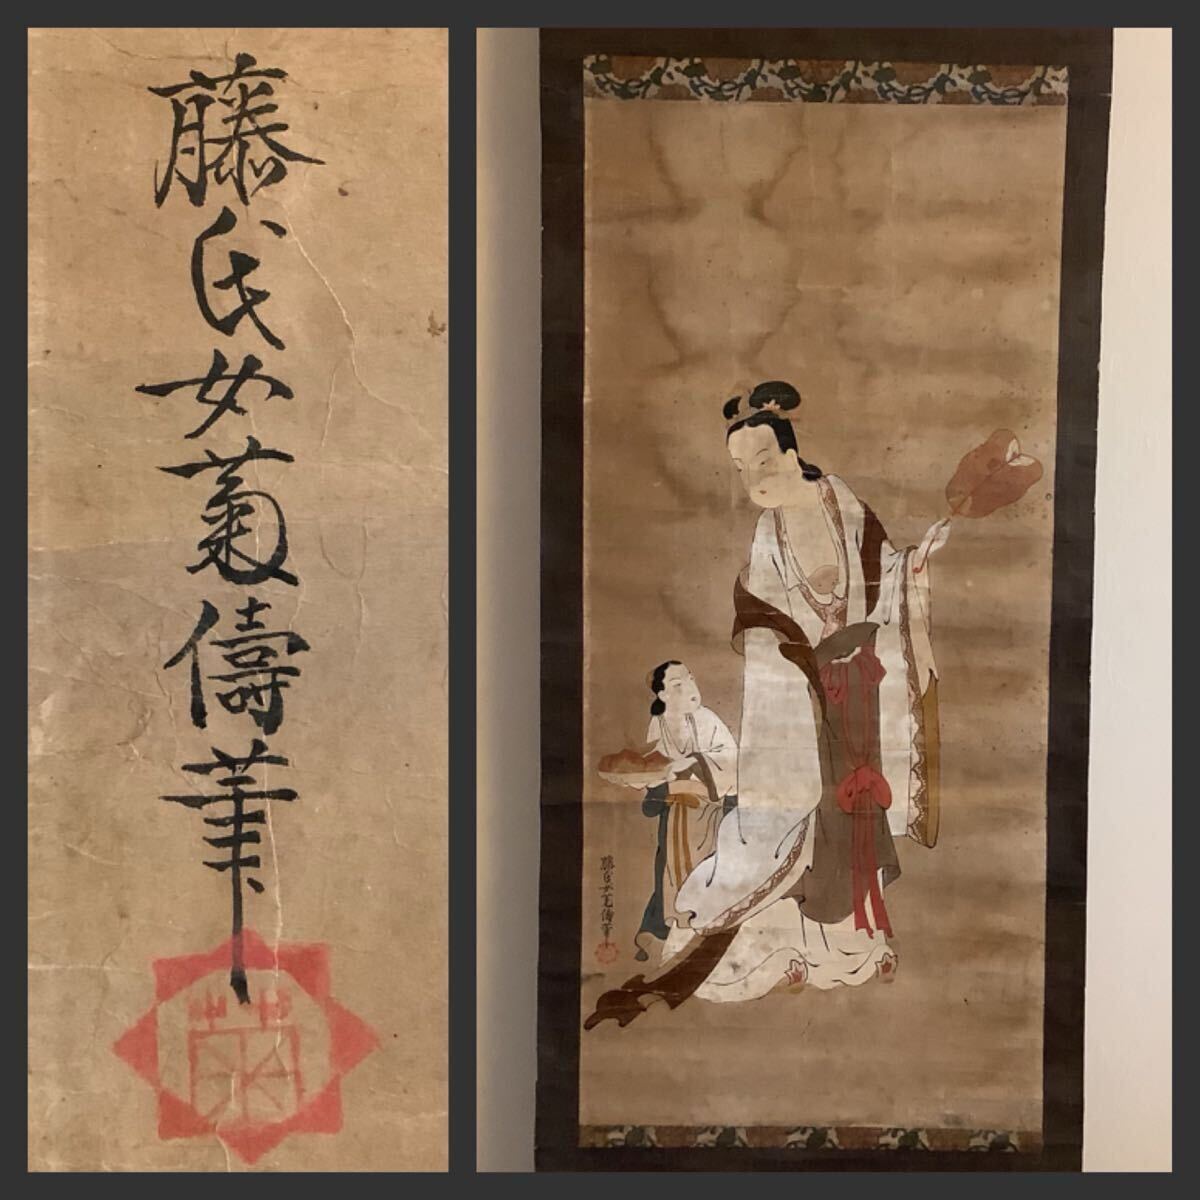 藤氏女菊儔筆
藤氏女菊儔筆